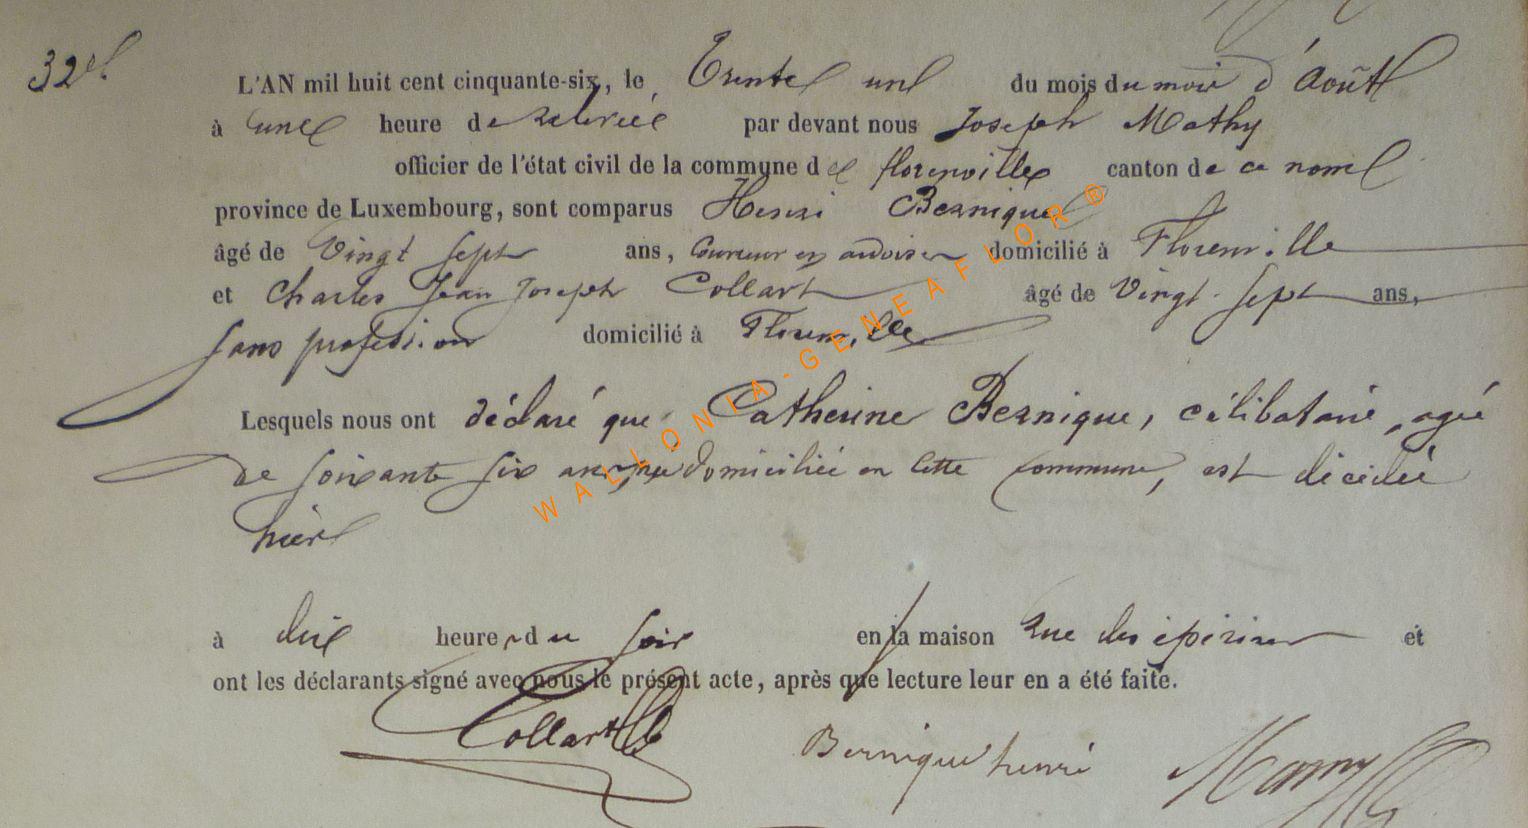 32e
L'AN mil huit cent cinquante-six, le Trente un du mois du mois d'Août
à une heure de relevée par devant nous Joseph Mathy
officier de l'état civil de la commune de florenville canton de ce nom
province de Luxembourg, sont comparus Henri Bernique
âgé de Vingt sept ans, Couvreur en ardoises domicilié à Florenville
et Charles Jean Joseph Collart âgé de Vingt-sept ans,
sans profession domicilié à Florenville
Lesquels nous ont déclaré que Catherine Bernique, célibataire, agée
de soixante six ans, née domiciliée en cette commune, est décédée
hier
à dix heures du soir en la maison Rue des épiciers et
ont les déclarants signé avec nous le présent acte, après que lecture leur en a été faite.
Collart Bernique henri
WALLONIA-GENEAFLOR®